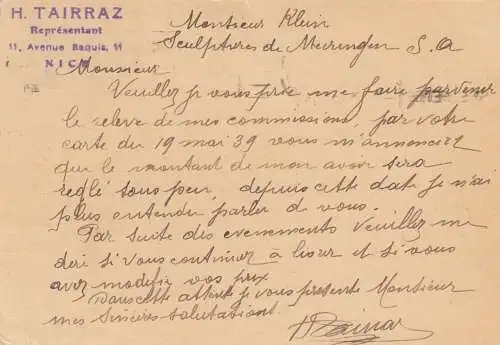 H. TAIRRAZ
Représentant
11, Avenue Baquis, 11
NICE
Monsieur Klein
Sculptures de Meiringen S.A
Monsieur
Veuillez je vous prie me faire parvenir
le relevé de mes commissions, par votre
carte du 19 mai 39 vous m'annonciez
que le montant de mon avoir sera
reglé sous peu, depuis cette date je n'ai
plus entendu parler de vous.
Par suite des evenements veuillez me
dire si vous continuez à livrer et si vous
avez modifié vos prix
Dans cette attente je vous presente Monsieur
mes sincères salutations.